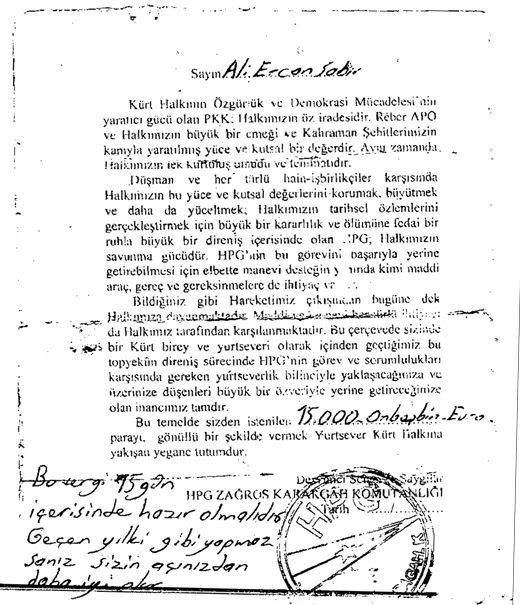 Sayın Ali Ercan Sabır
Kürt Halkının Özgürlük ve Demokrasi Mücadelesi'nin
yaratıcı gücü olan PKK; Halkımızın öz iradesidir. Rêber APO
ve Halkımızın büyük bir emeği ve Kahraman Şehitlerimizin
kanıyla yaratılmış yüce ve kutsal bir değerdir. Aynı zamanda,
Halkımızın tek kurtuluş umudu ve teminatıdır.
Düşman ve her türlü hain-işbirlikçiler karşısında
Halkımızın bu yüce ve kutsal değerlerini korumak, büyütmek
ve daha da yüceltmek; Halkımızın tarihsel özlemlerini
gerçekleştirmek için büyük bir kararlılık ve ölümüne fedai bir
ruhla büyük bir direniş içerisinde olan HPG; Halkımızın
savunma gücüdür. HPG'nin bu görevini başarıyla yerine
getirebilmesi için elbette manevi desteğin yanında kimi maddi
araç, gereç ve gereksinmelere de ihtiyaç
Bildiğiniz gibi Hareketimiz çıkışından bugüne dek
Halkımıza dayanmaktadır.
da Halkımız tarafından karşılanmaktadır. Bu çerçevede sizinde
bir Kürt birey ve yurtseveri olarak içinden geçtiğimiz bu
topyekûn direniş sürecinde HPG'nin görev ve sorumlulukları
karşısında gereken yurtseverlik bilinciyle yaklaşacağınıza ve
üzerinize düşenleri büyük bir özveriyle yerine getireceğinize
olan inancımız tamdır.
Bu temelde sizden istenilen 15.000 Onbeşbin Euro
parayı, gönüllü bir şekilde vermek Yurtsever Kürt Halkına
yakışan yegane tutumdur.
Devrimci Selam ve Saygılar
HPG ZAĞROS KARARGÂH KOMUTANLIĞI
Tarih .../.../
HPG
Bo vergi 15 gün
içerisinde hazır olmalıdır
Geçen yılki gibi yapmaz
sanız sizin açınızdan
daha iyi olur